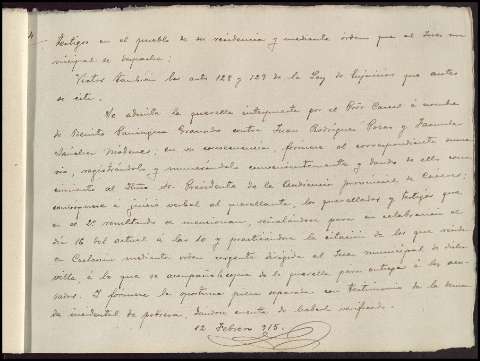 testigos en el pueblo de su residencia y mediante orden que al Juez mu
nicipal se despacha;
Vistos tambien los arts 128 y 129 de la Ley de Enjuicio que antes
se cita.
Se admite la querella interpuesta por el Pror a nombre
de Benito Granado contra Juan Rodriguez y
Sanchez; en su consecuencia, fórmese el correspondiente suma
rio, registrándolo y numerándolo convenientemente y dando de ello cono
cimiento al Iltmo Sr. Presidente de la Audiencia provincial de Caceres;
convoquese á juicio verbal al querellante, los querellados y testigos que
en el 2º resultando se mencionan, señalándose para su celebracion el
dia 16 del actual á las 10 y practicándose la citación de los que residen
en mediante orden urgente dirigida al Juez municipal de dicha
villa, á la que se acompañará copia de la querella para entrega á los acu
sados. Y fórmese la oportuna pieza separada con testimonio de la deman
da incidental de pobreza, dandose cuenta de haberlo verificado.
12 Febrero 915.